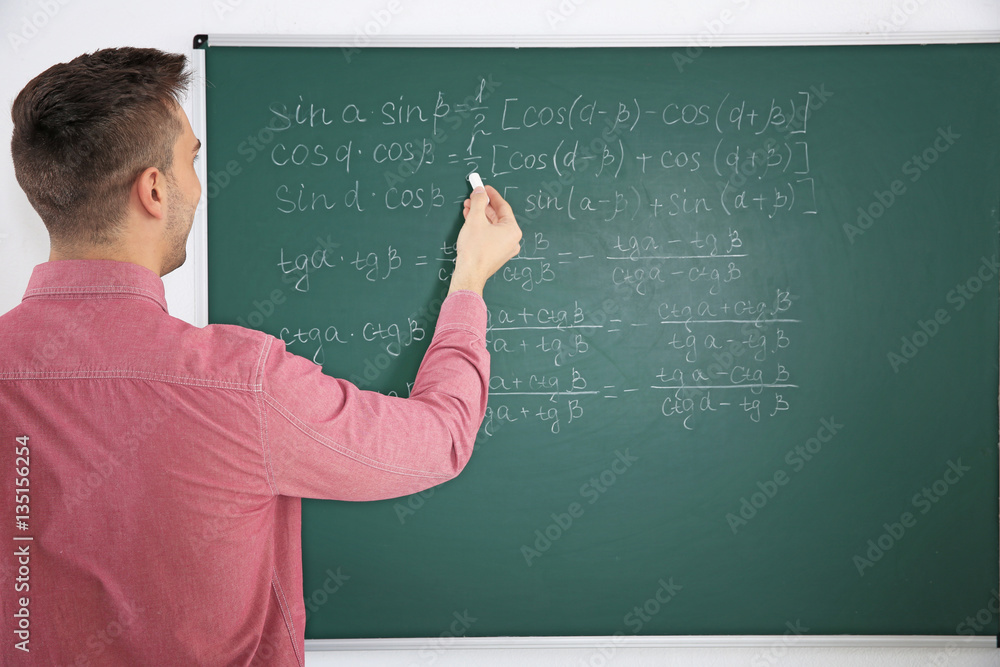 sin a · sin β = 1/2 [cos(d-β) - cos(d+β)]
cos a · cos β = 1/2 [cos(d-β) + cos(d+β)]
sin d · cos β = [sin(a-β) + sin(d+β)]
tg a · tg β = = - tg a - tg β / ctg a - ctg β
ctg β
ctg a · ctg β a + ctg β / a + tg β = - ctg a + ctg β / tg a - tg β
a + ctg β / ga + tg β = - tg a - ctg β / ctg d - tg β
Adobe Stock | #135156254